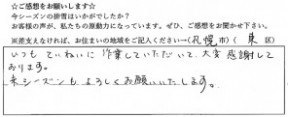 ☆ご感想をお願いします☆
今シーズンの排雪はいかがでしたか?
お客様の声が、私たちの原動力になっています。ぜひ、ご感想をお聞かせ下さい。
※差支えなければ、お住まいの地域をご記入ください→(札幌市)(東区)
いつも ていねいに 作業していただいて、大変 感謝して
おります。
来シーズンも よろしくお願いいたします。